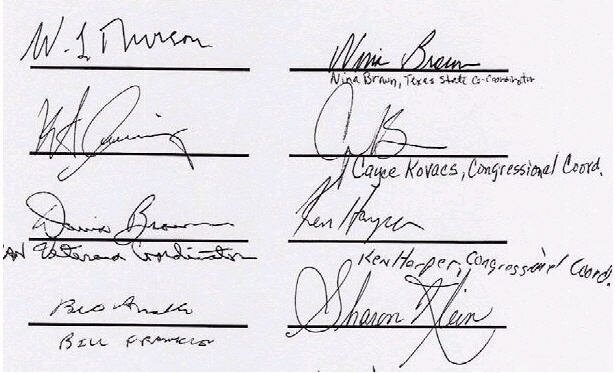 W. L Thurson
Nina Brown
Nina Brown, Texas State Co-Coordinator
Cayce Kovacs, Congressional Coord.
David Brown
Ken Harper
Veterans Coordinator
Ken Harper, Congressional Coord.
Bill Franklin
BILL FRANKLIN
Sharon Klein